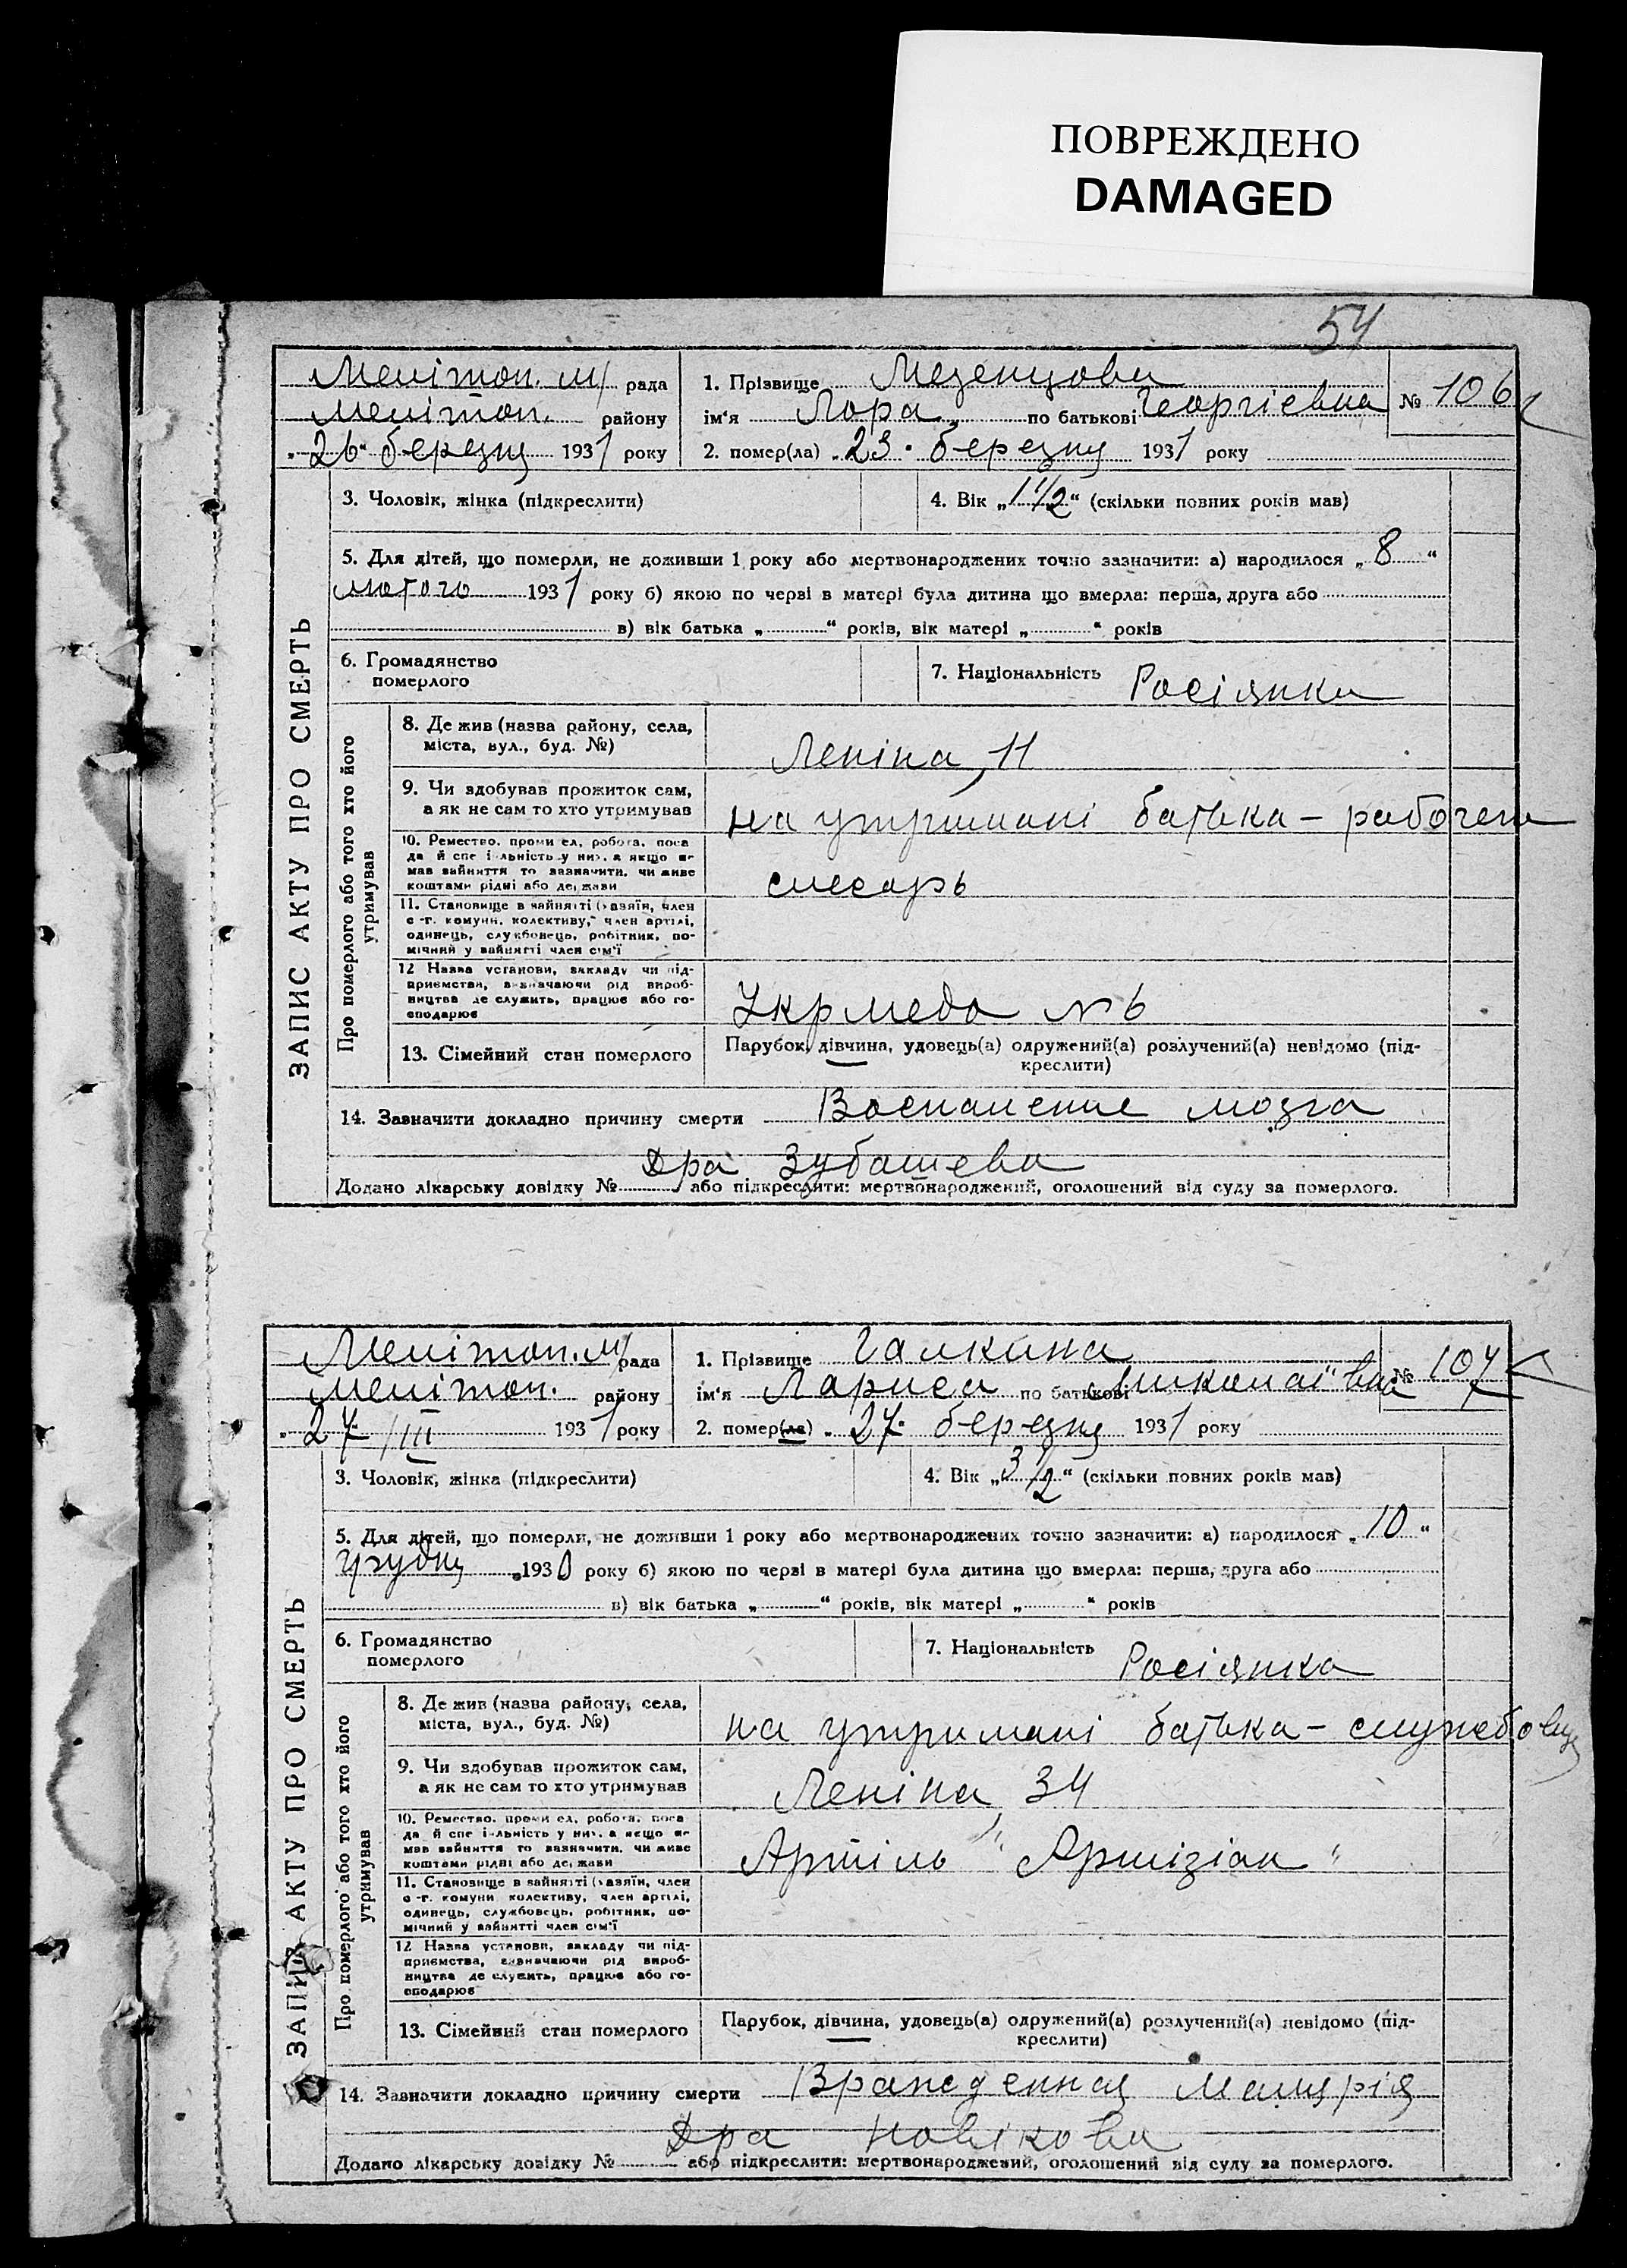 ПОВРЕЖДЕНО
DAMAGED
54
Мелітоп. м/ рада
Мелітоп. району
„26“ березня 1931 року
1. Прізвище Мезенцова
ім'я Лора по батькові Георгієвна
№ 106
2. помер(ла) „23“ березня 1931 року
ЗАПИС АКТУ ПРО СМЕРТЬ
3. Чоловік, жінка (підкреслити)
4. Вік „1 1/2“ (скільки повних років мав)
5. Для дітей, що померли, не доживши 1 року або мертвонароджених точно зазначити: а) народилося „8“
лютого 1931 року б) якою по черзі в матері була дитина що вмерла: перша, друга або
в) вік батька „ “ років, вік матері „ “ років
6. Громадянство
померлого
7. Національність Росіянка
Про померлого або того хто його
утримував
8. Де жив (назва району, села,
міста, вул., буд. №)
Леніна, 11
9. Чи здобував прожиток сам,
а як не сам то хто утримував
на утримані батька - рабочего
10. Ремество, промисел, робота, поса
да й спеціальність у них, а якщо не
мав зайняття то зазначити, чи живе
коштами рідні або держави
слесарь
11. Становище в зайнятті (хазяїн, член
с.-г. комуни, колективу, член артілі,
одинець, службовець, робітник, по-
мічний у зайнятті член сім'ї
12 Назва установи, закладу чи під-
приємства, визначаючи рід вироб-
ництва де служить, працює або го-
сподарює
Укрмеда № 6
13. Сімейний стан померлого
Парубок, дівчина, удовець(а) одружений(а) розлучений(а) невідомо (під-
креслити)
14. Зазначити докладно причину смерти Воспаление мозга
Дра Зубашева
Додано лікарську довідку № або підкреслити: мертвонароджений, оголошений від суду за померлого.
Мелітоп. м/ рада
Мелітоп. району
„27“ /III 1931 року
1. Прізвище Галкина
ім'я Лариса по батькові Миколаївна
№ 107
2. помер(ла) „27“ березня 1931 року
ЗАПИС АКТУ ПРО СМЕРТЬ
3. Чоловік, жінка (підкреслити)
4. Вік „3 1/2“ (скільки повних років мав)
5. Для дітей, що померли, не доживши 1 року або мертвонароджених точно зазначити: а) народилося „10“
грудня 1930 року б) якою по черзі в матері була дитина що вмерла: перша, друга або
в) вік батька „ “ років, вік матері „ “ років
6. Громадянство
померлого
7. Національність Росіянка
Про померлого або того хто його
утримував
8. Де жив (назва району, села,
міста, вул., буд. №)
на утримані батька - службовця
9. Чи здобував прожиток сам,
а як не сам то хто утримував
Леніна, 34
10. Ремество, промисел, робота, поса
да й спеціальність у них, а якщо не
мав зайняття то зазначити, чи живе
коштами рідні або держави
Артіль "Артізіан"
11. Становище в зайнятті (хазяїн, член
с.-г. комуни колективу, член артілі,
одинець, службовець, робітник, по-
мічний у зайнятті член сім'ї
12 Назва установи, закладу чи під-
приємства, визначаючи рід вироб-
ництва де служить, працює або го-
сподарює
13. Сімейний стан померлого
Парубок, дівчина, удовець(а) одружений(а) розлучений(а) невідомо (під-
креслити)
14. Зазначити докладно причину смерти Врожденная Малярія
Дра Новікова
Додано лікарську довідку № або підкреслити: мертвонароджений, оголошений від суду за померлого.